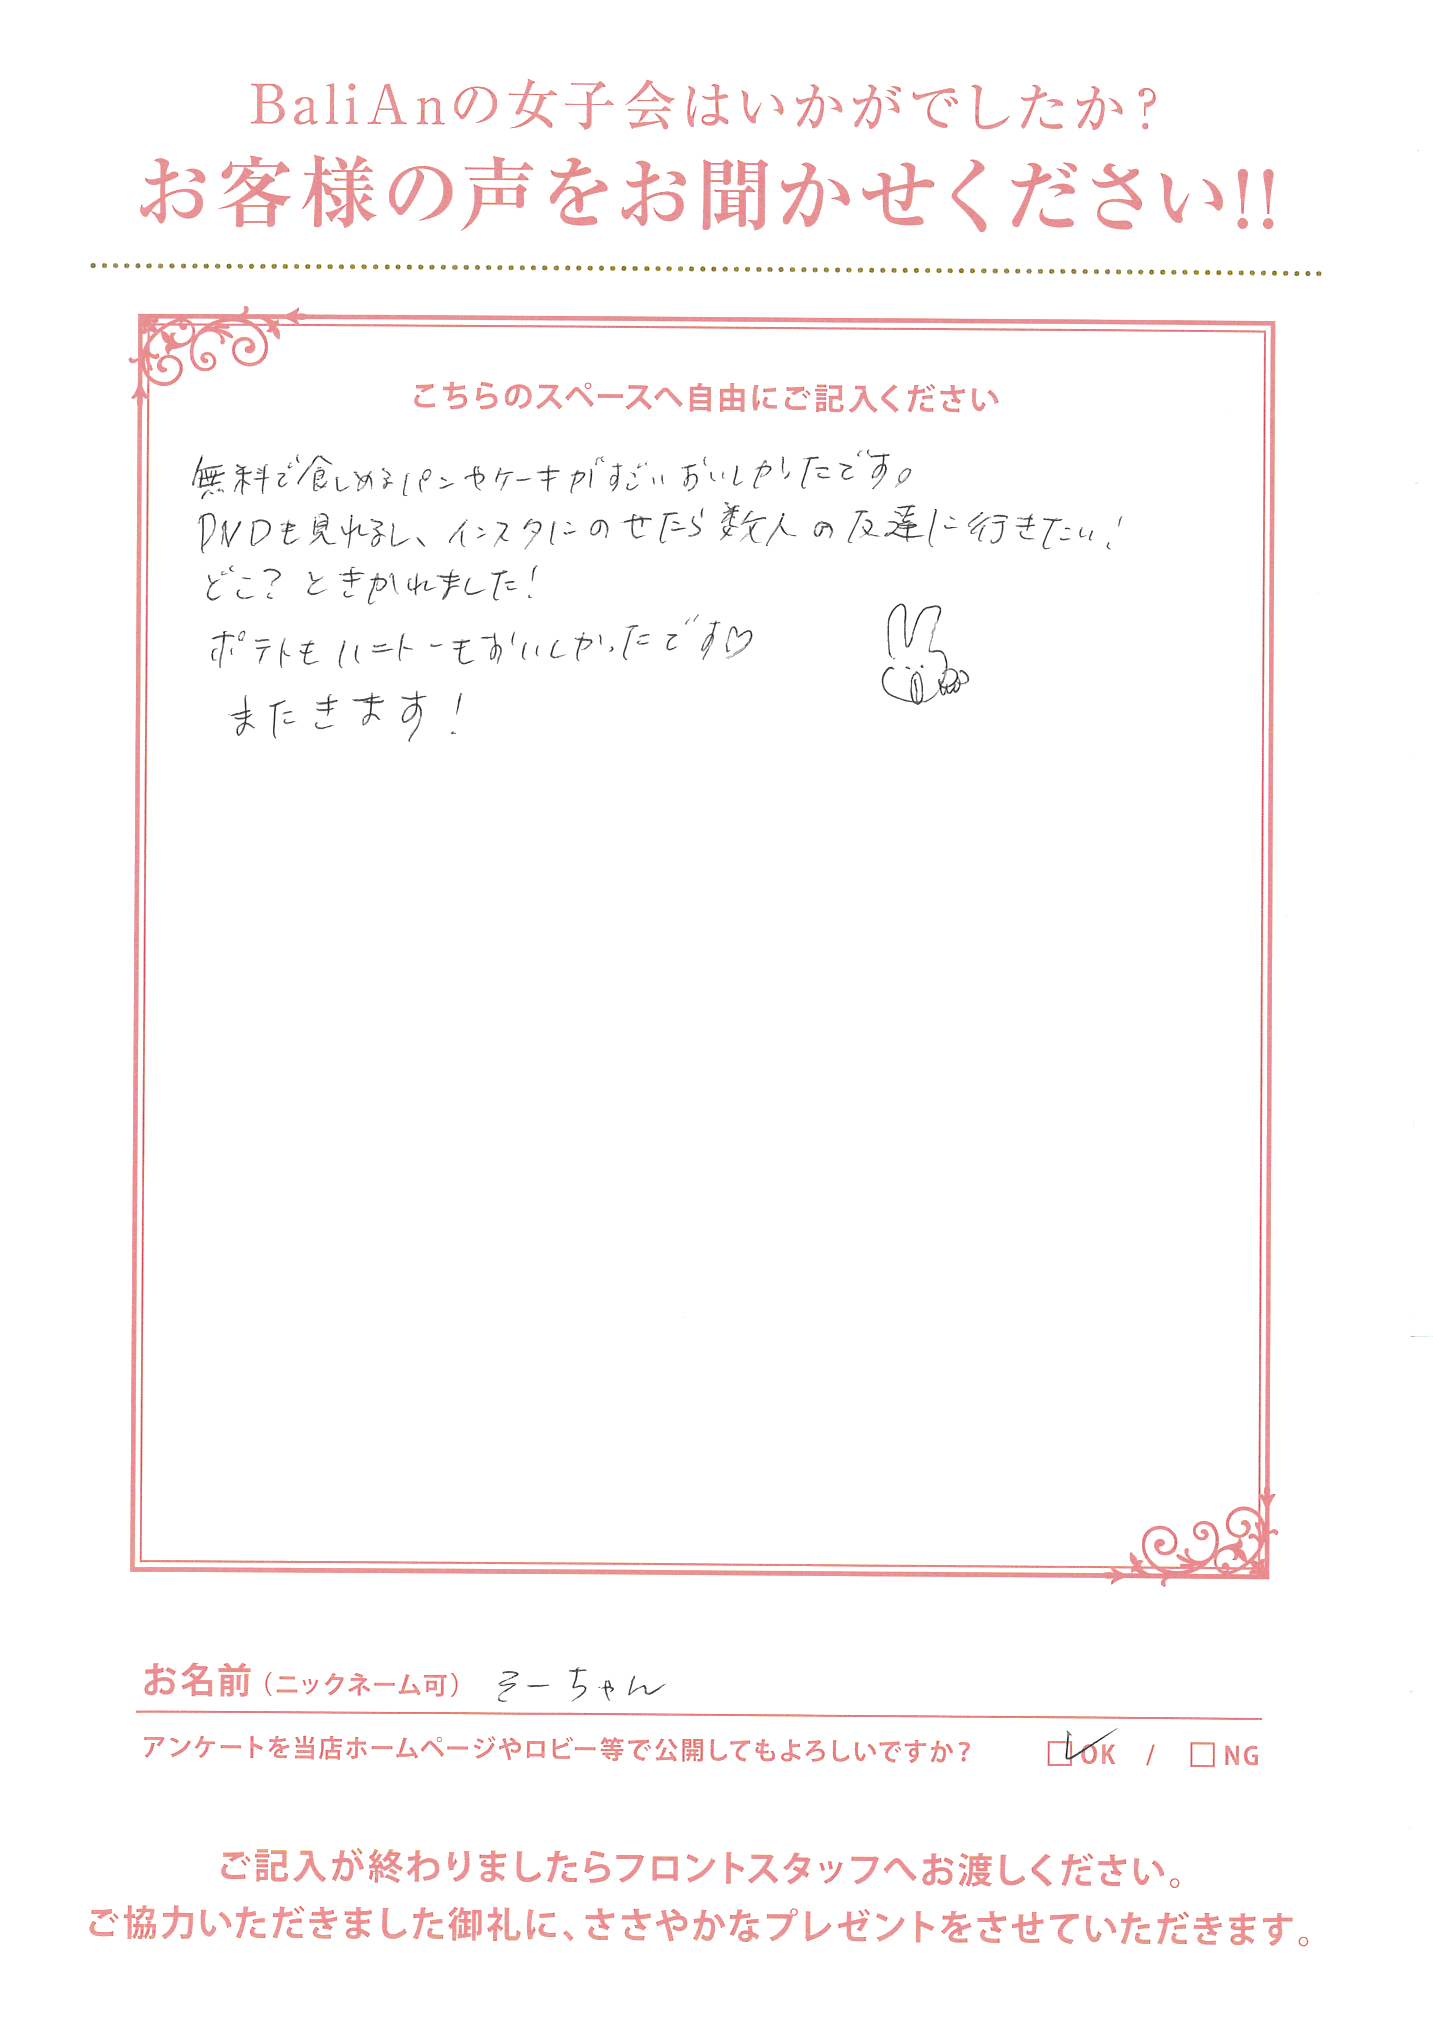 BaliAnの女子会はいかがでしたか?
お客様の声をお聞かせください!!
こちらのスペースへ自由にご記入ください
無料で食しめるパンやケーキがすごいおいしかったです。
DVDも見れるし、インスタにのせたら数人の友達に行きたい!
どこ?ときかれました!
ポテトもハニトーもおいしかったです♡
またきます!
お名前(ニックネーム可) そーちゃん
アンケートを当店ホームページやロビー等で公開してもよろしいですか? ☑OK / □NG
ご記入が終わりましたらフロントスタッフへお渡しください。
ご協力いただきました御礼に、ささやかなプレゼントをさせていただきます。